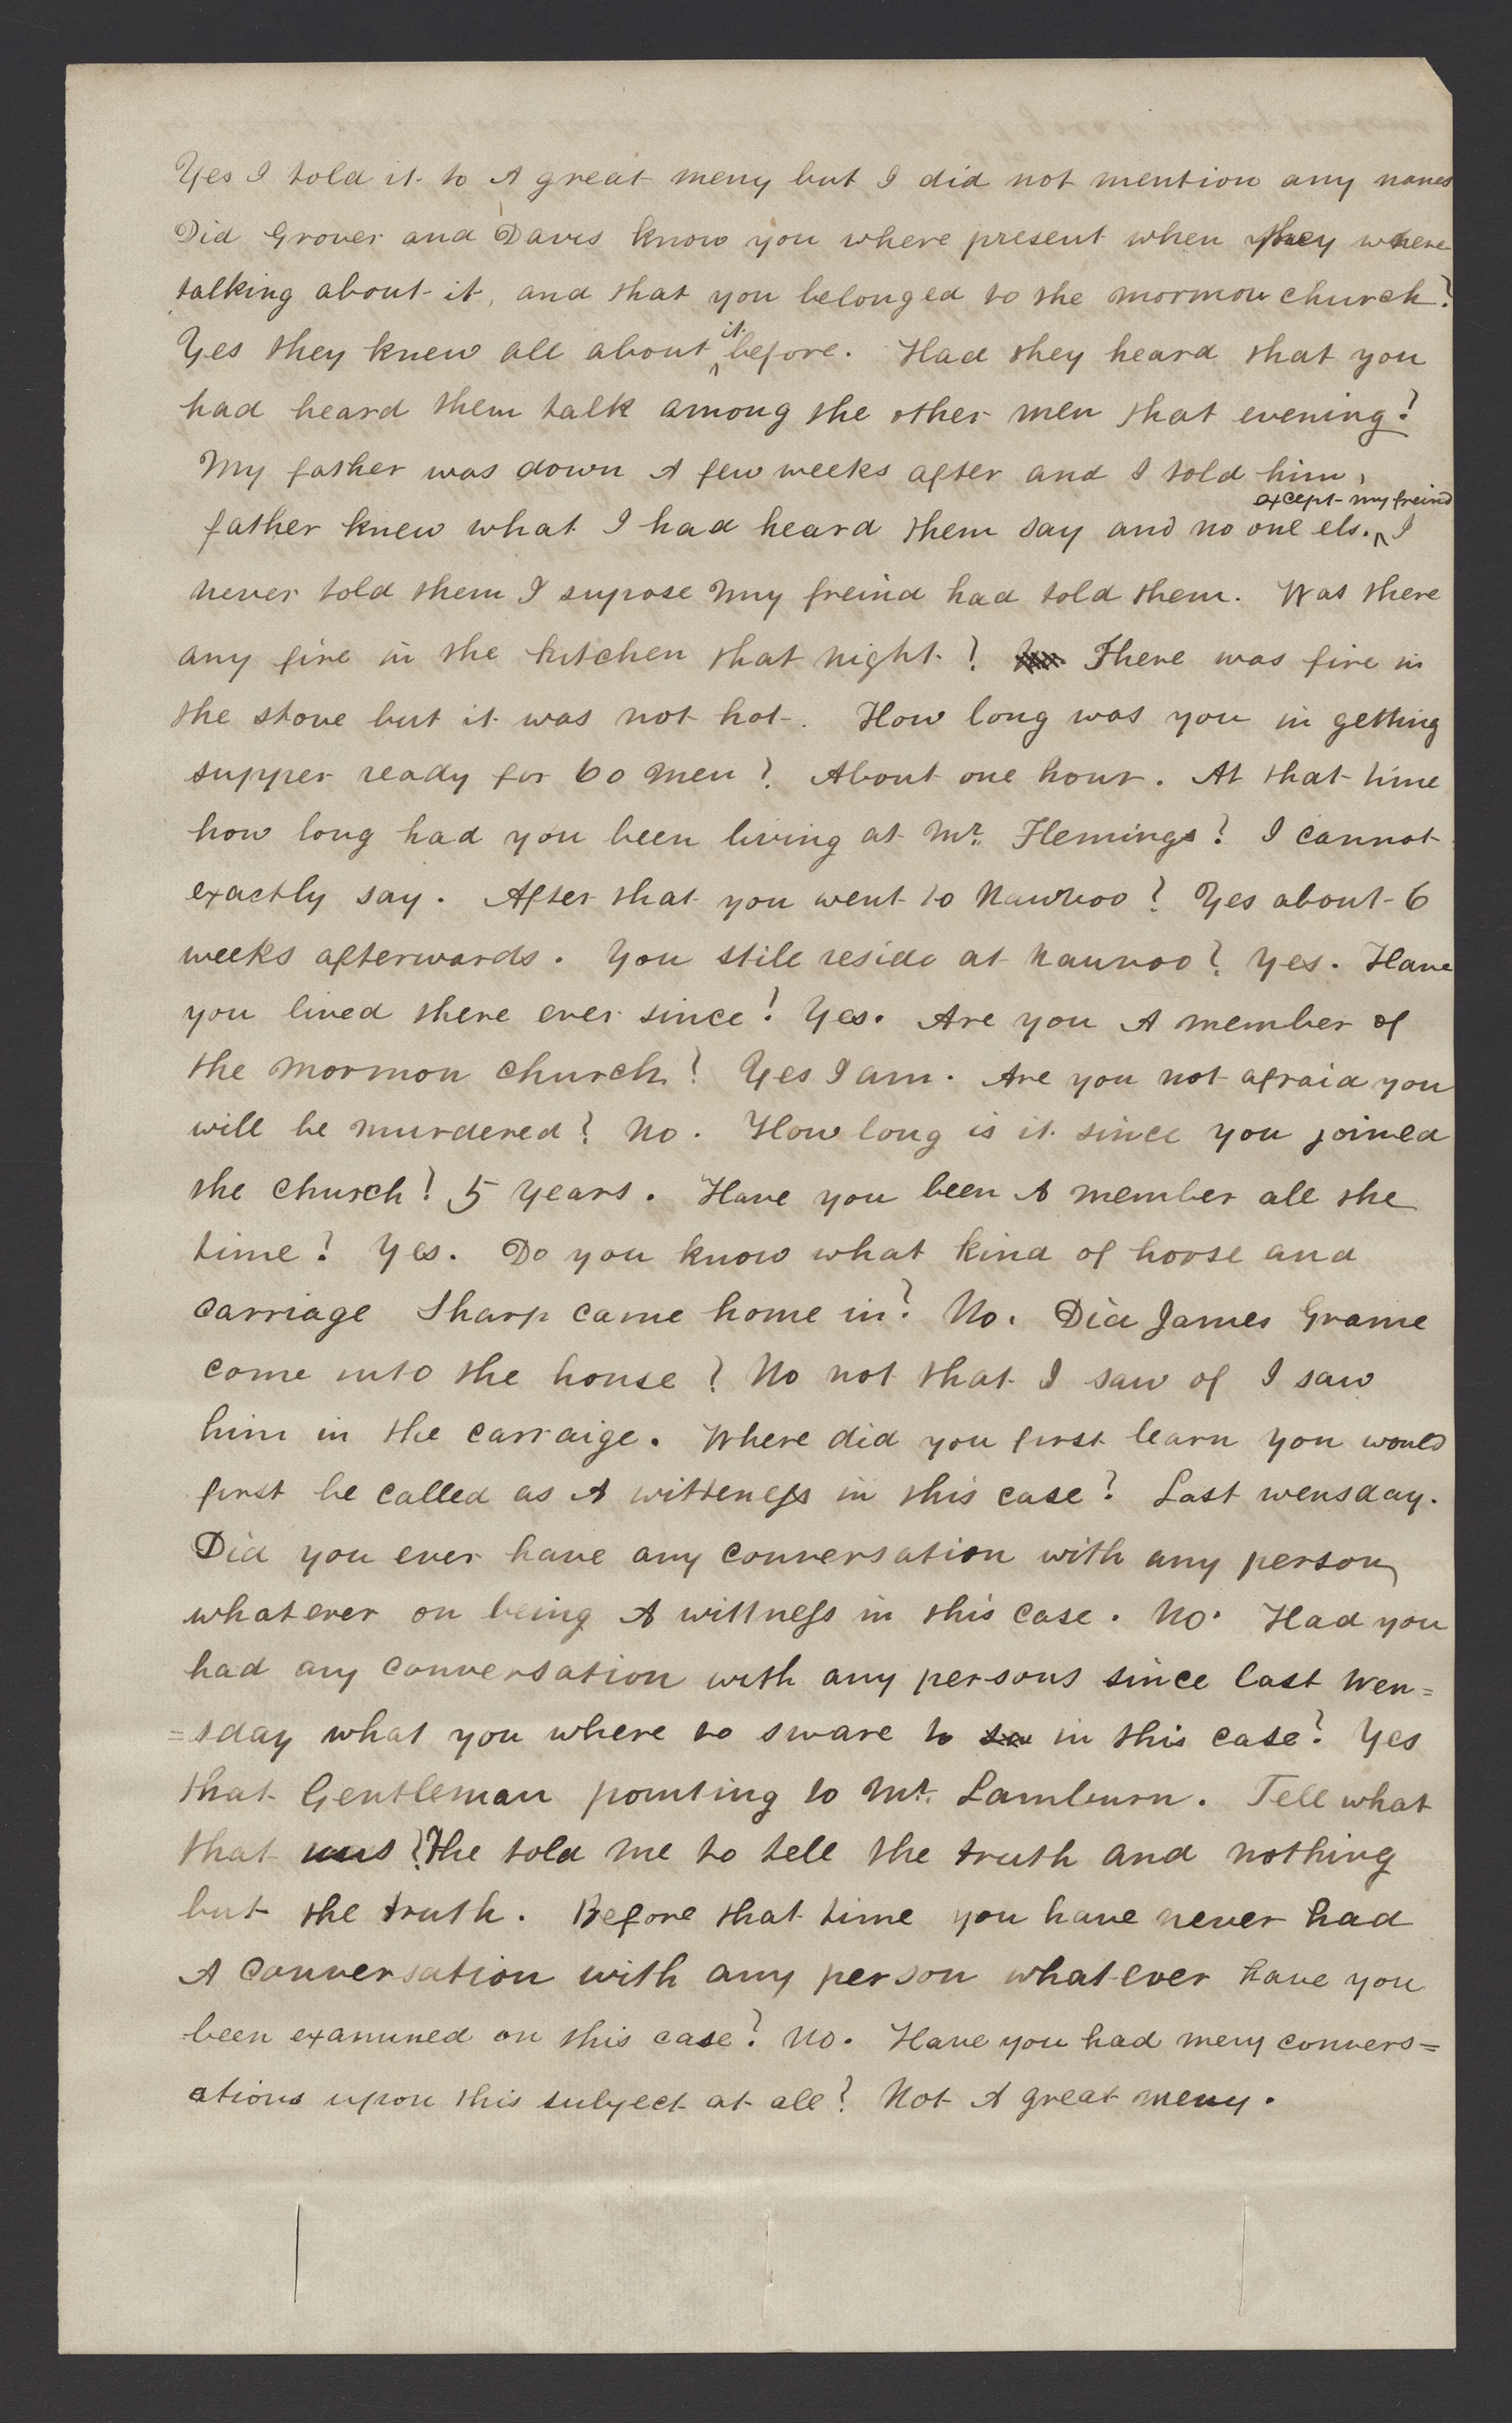 Yes I told it to A great meny but I did not mention any names
Did Grover and Davis know you where present when they where
talking about it, and that you belonged to the mormon church?
Yes they knew all about it before. Had they heard that you
had heard them talk among the other men that evening?
My father was down A few weeks after and I told him,
except my freind
father knew what I had heard them say and no one els. I
never told them I supose my freind had told them. Was there
any fire in the kitchen that night? There was fire in
the stove but it was not hot. How long was you in getting
supper ready for 60 men? About one hour. At that time
how long had you been living at Mr. Flemings? I cannot
exactly say. After that you went to Nauvoo? Yes about 6
weeks afterwards. You still reside at Nauvoo? Yes. Have
you lived there ever since? Yes. Are you A member of
the mormon church? Yes I am. Are you not afraid you
will be murdered? No. How long is it since you joined
the church? 5 years. Have you been A member all the
time? Yes. Do you know what kind of horse and
carriage Sharp came home in? No. Did James Grame
come into the house? No not that I saw of I saw
him in the carraige. Where did you first learn you would
first be called as A witteness in this case? Last wensday.
Did you ever have any conversation with any person
whatever on being A wittness in this case. No. Had you
had any conversation with any persons since last Wen=
=sday what you where to sware to in this case? Yes
that Gentleman pointing to Mr. Lamburn. Tell what
that was? He told me to tell the truth and nothing
but the truth. Before that time you have never had
A conversation with any person whatever have you
been examined on this case? No. Have you had meny convers=
ations upon this subject at all? Not A great meny.